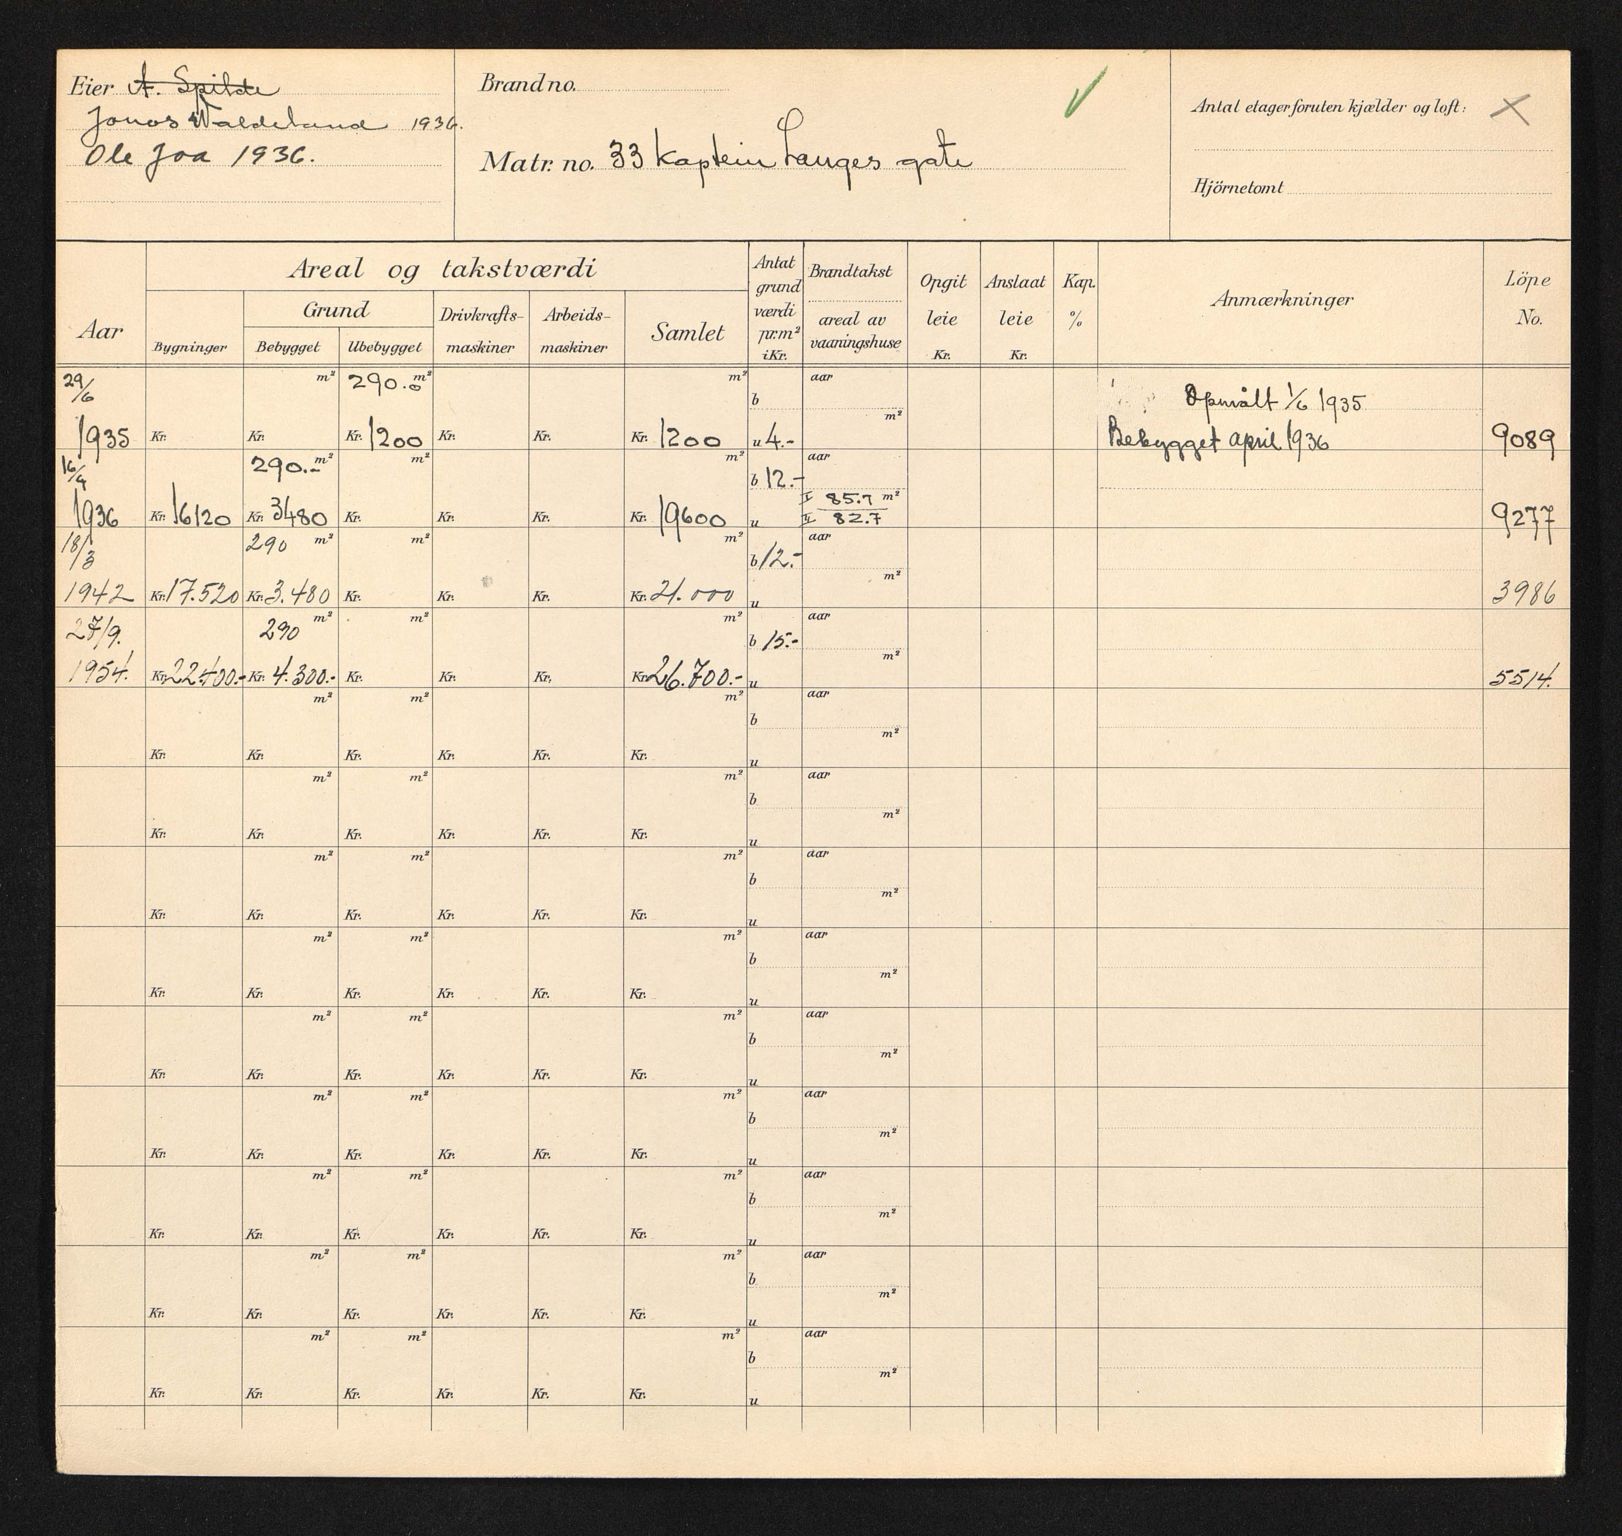 Eier A. Spilde
Jonas Waldeland 1936.
Ole Joa 1936.
Brandno.
Matr. no. 33 Kaptein Langes gate
Antal etager foruten kjælder og loft:
Hjörnetomt
Aar
Areal og takstværdi
Grund
Bygninger
Bebygget
Ubebygget
Drivkrafts-
maskiner
Arbeids-
maskiner
Samlet
Antat
grund
værdi
pr.m²
i Kr.
Brandtakst
areal av
vaaningshuse
Opgit
leie
Kr.
Anslaat
leie
Kr.
Kap.
%
Anmærkninger
Löpe
No.
29/6 m² 290.0 m² m² b aar Opmålt 1/6 1935
1935 Kr. Kr. Kr. 1200 Kr. Kr. Kr. 1200 u 4.- m² Bebygget april 1936 9089
16/4 290.- m² m² m² b 12.- aar
1936 Kr. 16120 Kr. 3480 Kr. Kr. Kr. Kr. 19600 u I 85.7 m² 9277
II 82.7
18/3 290 m² m² m² b 12.- aar
1942 Kr. 17.520 Kr. 3.480 Kr. Kr. Kr. Kr. 21.000 u m² 3986
27/9. 290 m² m² m² b 15.- aar
1954. Kr. 22.400.- Kr. 4.300.- Kr. Kr. Kr. Kr. 26.700.- u m² 5514.
m² m² m² b aar
Kr. Kr. Kr. Kr. Kr. Kr. u m²
m² m² m² b aar
Kr. Kr. Kr. Kr. Kr. Kr. u m²
m² m² m² b aar
Kr. Kr. Kr. Kr. Kr. Kr. u m²
m² m² m² b aar
Kr. Kr. Kr. Kr. Kr. Kr. u m²
m² m² m² b aar
Kr. Kr. Kr. Kr. Kr. Kr. u m²
m² m² m² b aar
Kr. Kr. Kr. Kr. Kr. Kr. u m²
m² m² m² b aar
Kr. Kr. Kr. Kr. Kr. Kr. u m²
m² m² m² b aar
Kr. Kr. Kr. Kr. Kr. Kr. u m²
m² m² m² b aar
Kr. Kr. Kr. Kr. Kr. Kr. u m²